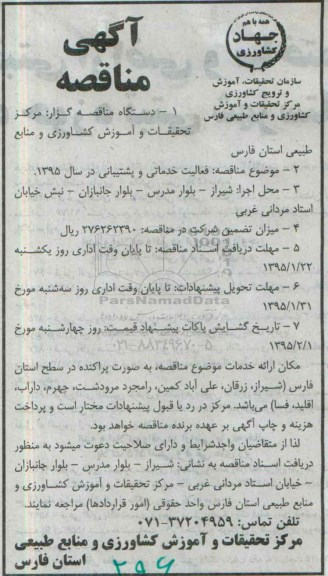 همه با هم
جهاد
کشاورزی
سازمان تحقیقات، آموزش
و ترویج کشاورزی
مرکز تحقیقات و آموزش
کشاورزی و منابع طبیعی فارس
آگهی
مناقصه
۱ – دستگاه مناقصه گزار: مرکز
تحقیقات و آموزش کشاورزی و منابع
طبیعی استان فارس
۲ – موضوع مناقصه: فعالیت خدماتی و پشتیبانی در سال ۱۳۹۵.
۳ – محل اجرا: شیراز – بلوار مدرس – بلوار جانبازان – نبش خیابان
استاد مردانی غربی
۴ – میزان تضمین شرکت در مناقصه: ۲۷۶۲۶۲۳۹۰ ریال
۵ – مهلت دریافت اسناد مناقصه: تا پایان وقت اداری روز یکشنبه
۱۳۹۵/۱/۲۲
۶ – مهلت تحویل پیشنهادات: تا پایان وقت اداری روز سه‌شنبه مورخ
۱۳۹۵/۱/۳۱
ParsNamadData
۷ – تاریخ گشایش پاکات پیشنهاد قیمت: روز چهارشنبه مورخ
۱۳۹۵/۲/۱
۰۲۱-۸۸۳۴۹۶۷۰-۵
مکان ارائه خدمات موضوع مناقصه، به صورت پراکنده در سطح استان
فارس (شیراز، زرقان، علی آباد کمین، رامجرد مرودشت، جهرم، داراب،
اقلید، فسا) می‌باشد. مرکز در رد یا قبول پیشنهادات مختار است و پرداخت
هزینه و چاپ آگهی بر عهده برنده مناقصه خواهد بود.
لذا از متقاضیان واجدشرایط و دارای صلاحیت دعوت میشود به منظور
دریافت اسناد مناقصه به نشانی: شیراز – بلوار مدرس – بلوار جانبازان
– خیابان استاد مردانی غربی – مرکز تحقیقات و آموزش کشاورزی و
منابع طبیعی استان فارس واحد حقوقی (امور قراردادها) مراجعه نمایند.
تلفن تماس: ۳۷۲۰۴۹۵۹-۰۷۱
مرکز تحقیقات و آموزش کشاورزی و منابع طبیعی
استان فارس